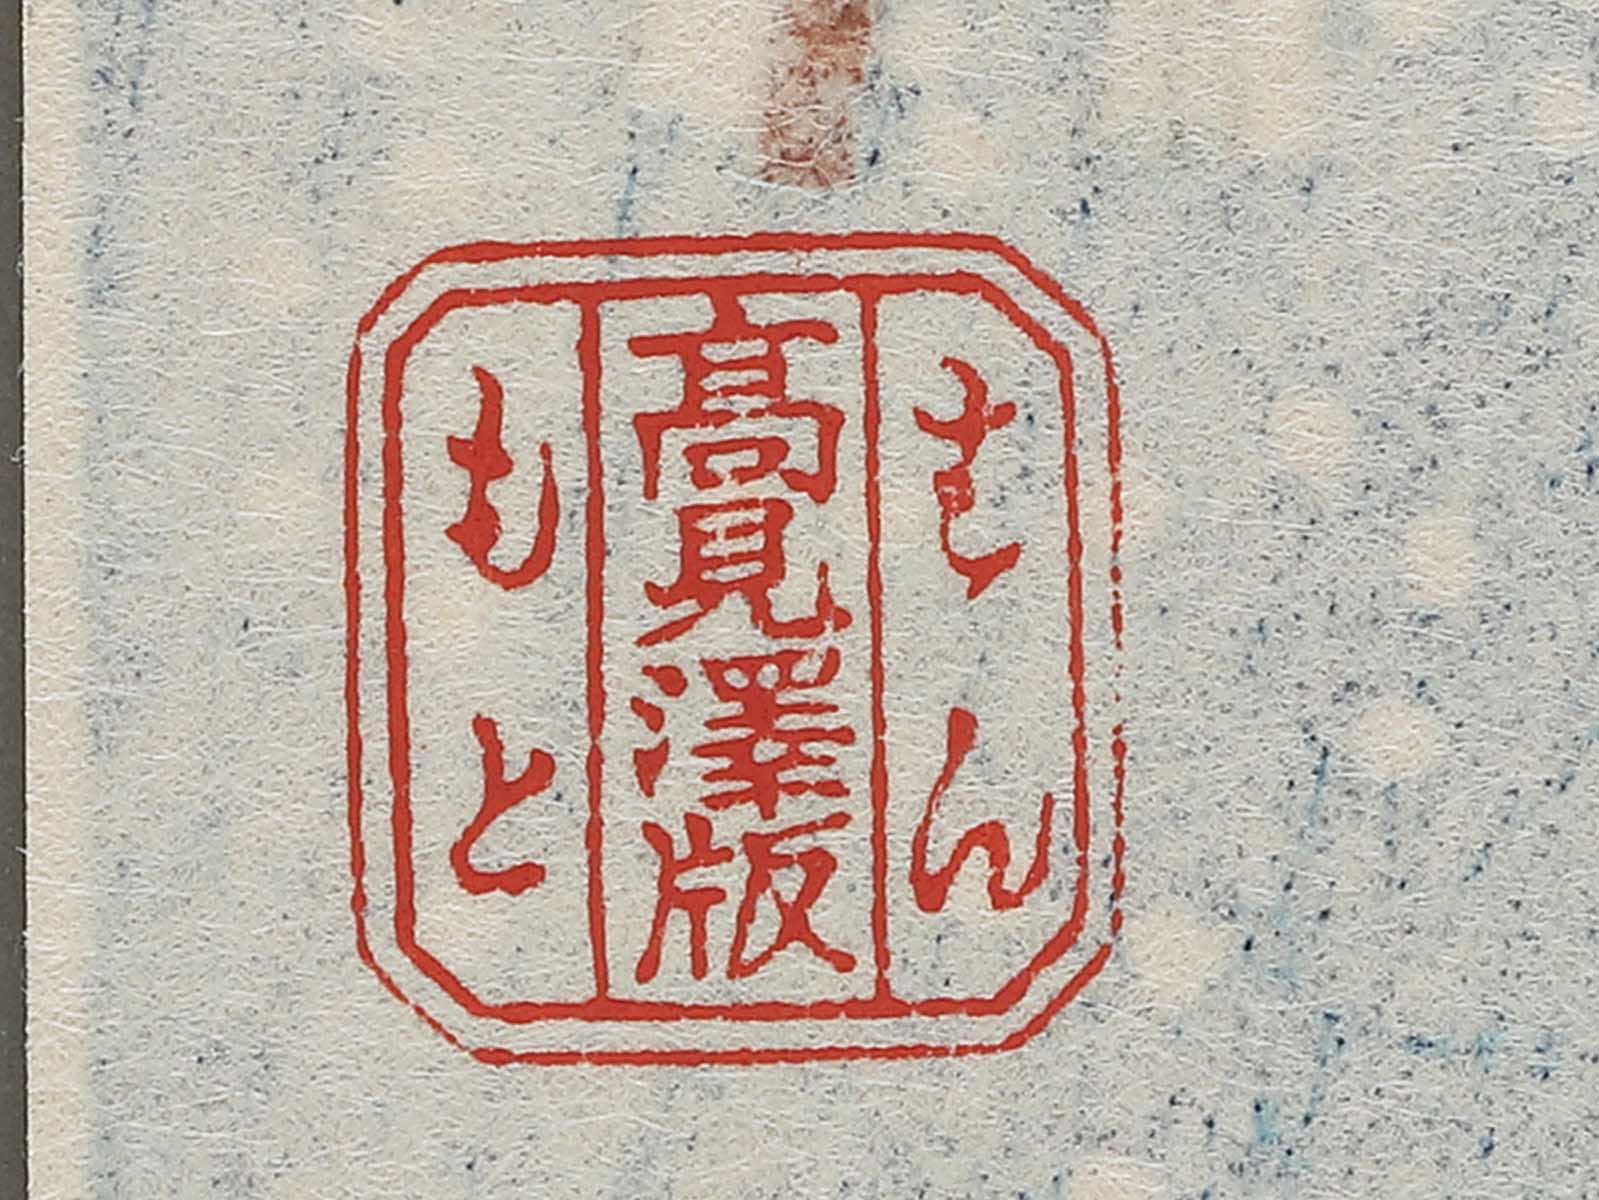 はん
高見澤版
もと